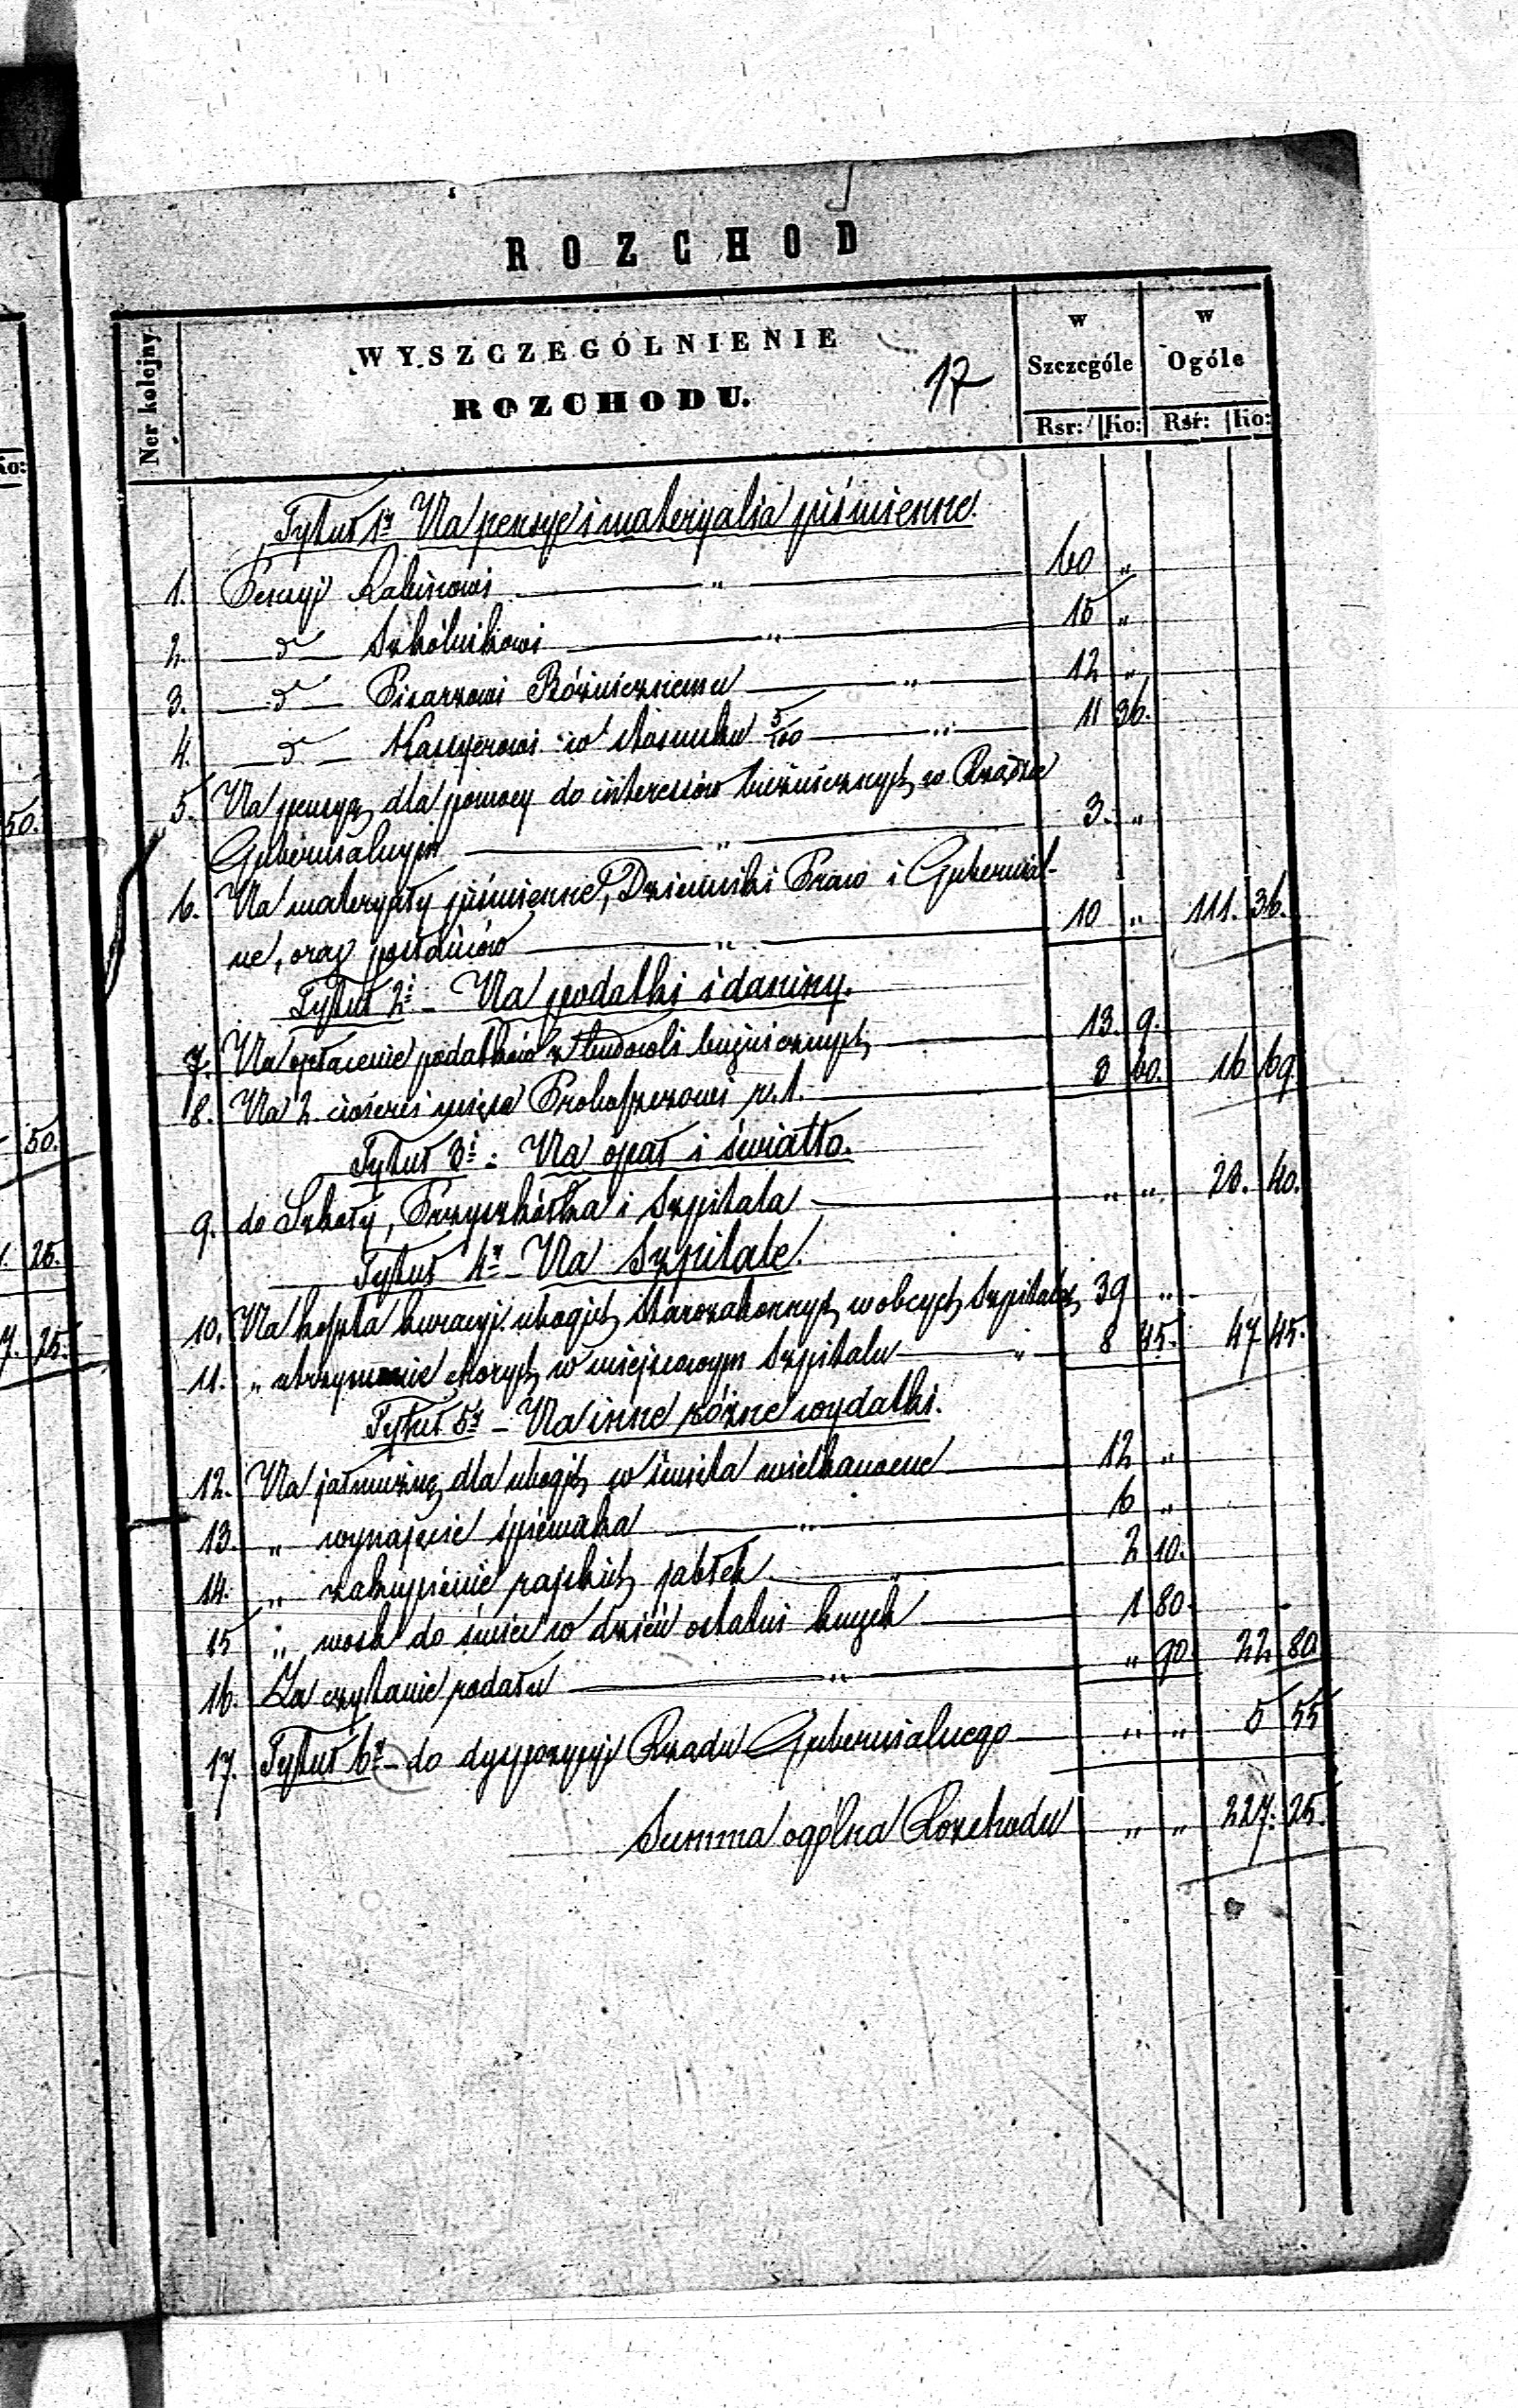 ROZCHOD
Ner kolejny
WYSZCZEGÓLNIENIE
ROZCHODU.
17
w Szczególe
w Ogóle
Rsr: Ko: Rsr: Ko:
Tytuł 1y Na pensye i materyalia piśmienne.
1. Pensyi Rabinowi " 60 "
2. d° Szkólnikowi " 15 "
3. d° Pisarzowi Bóżnicznemu " 12 "
4. d° Kassyerowi w stosunku 5/100 " 11 36.
5. Na pensyą dla pomocy do interessów bużnicznych w Rządzie
Gubernialnym " 3. "
6. Na materyały piśmienne, Dzienniki Praw i Gubernial-
ne, oraz posłańców " 10 " 111. 36.
Tytuł 2i - Na podatki i daniny.
7. Na opłacenie podatków z budowli bużnicznych 13. 9.
8. Na 2 cioserei mięsa Proboszczowi r. 1. 3 60. 16 69
Tytuł 3i: Na opał i światło.
9. do Szkoły, Przyszkółka i Szpitala " " 23. 40.
Tytuł 4y - Na Szpitale.
10. Na koszta kuracyi ubogich Starozakonnych w obcych Szpitalach 39 "
11. " utrzymanie chorych w miejscowym Szpitalu " 8 45. 47 45.
Tytuł 5y - Na inne różne wydatki.
12. Na jałmużnę dla ubogich w święta wielkanocne 12 "
13. " wynajęcie śpiewaka " 6 "
14. " zakupienie rajskich jabłek " 2 10.
15 " wosk do świec w dzień ostatni kuczek 1 80.
16. Za czytanie rodału " " 90. 22 80
17. Tytuł 6y - do dyspozycyi Rządu Gubernialnego " " 5 55
Summa ogólna Rozchodu " " 227. 25.